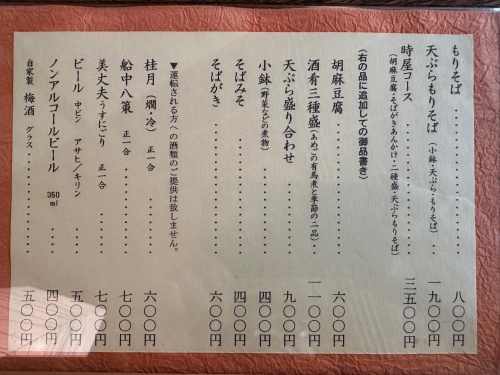 もりそば 八〇〇円
天ぷらもりそば（小鉢・天ぷら・もりそば） 一九〇〇円
時屋コース 三五〇〇円
（胡麻豆腐・そばがきあんかけ・二種盛・天ぷらもりそば）
（右の品に追加しての御品書き）
胡麻豆腐 六〇〇円
酒肴三種盛（あめごの有馬煮と季節の二品） 一一〇〇円
天ぷら盛り合わせ 九〇〇円
小鉢（野菜などの煮物） 四〇〇円
そばみそ 四〇〇円
そばがき 六〇〇円
▼運転される方への酒類のご提供は致しません。
桂月（燗・冷） 正一合 六〇〇円
船中八策 正一合 七〇〇円
美丈夫うすにごり 正一合 七〇〇円
ビール 中ビン アサヒ／キリン 五〇〇円
ノンアルコールビール 350ml 四〇〇円
自家製 梅酒 グラス 五〇〇円